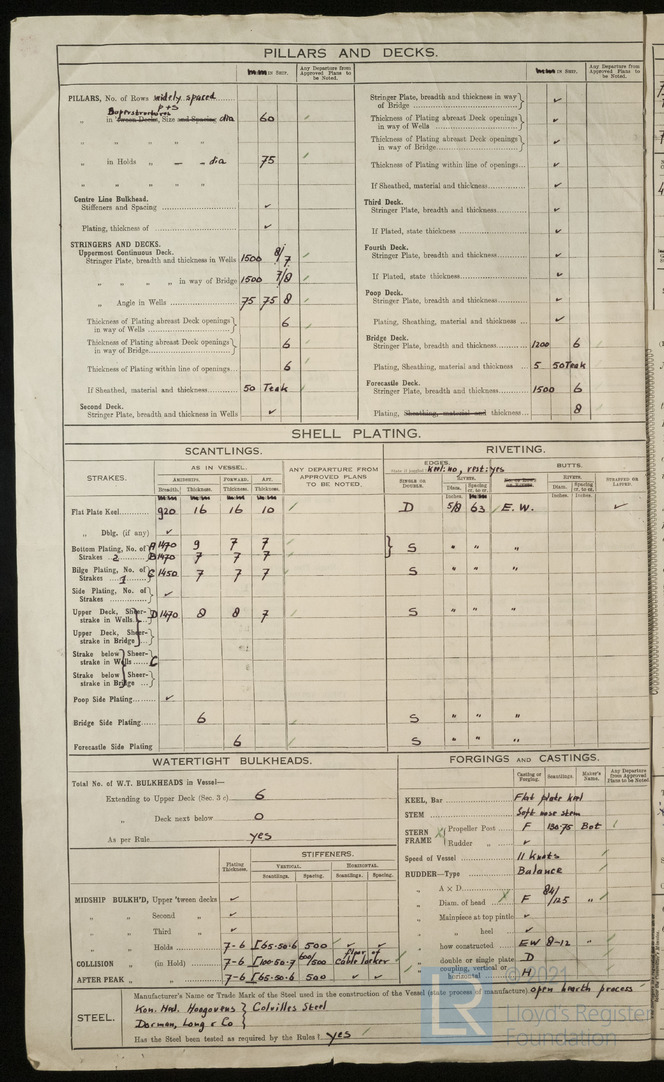 PILLARS AND DECKS.
IN SHIP. Any Departure from Approved Plans to be Noted.
PILLARS, No. of Rows widely spaced
Superstructures P+S
„ in 'tween Decks, Size and Spacing dia 60
„ „ „ „ „
„ in Holds „ — „ dia 75
„ „ „ „ „
Centre Line Bulkhead.
Stiffeners and Spacing ✓
Plating, thickness of ✓
STRINGERS AND DECKS.
Uppermost Continuous Deck.
Stringer Plate, breadth and thickness in Wells 1500 8/7
„ „ „ „ in way of Bridge 1500 7/8
„ Angle in Wells 75 75 8
Thickness of Plating abreast Deck openings in way of Wells 6
Thickness of Plating abreast Deck openings in way of Bridge 6
Thickness of Plating within line of openings 6
If Sheathed, material and thickness 50 Teak
Second Deck.
Stringer Plate, breadth and thickness in Wells ✓
IN SHIP. Any Departure from Approved Plans to be Noted.
Stringer Plate, breadth and thickness in way of Bridge ✓
Thickness of Plating abreast Deck openings in way of Wells ✓
Thickness of Plating abreast Deck openings in way of Bridge ✓
Thickness of Plating within line of openings ✓
If Sheathed, material and thickness ✓
Third Deck.
Stringer Plate, breadth and thickness ✓
If Plated, state thickness ✓
Fourth Deck.
Stringer Plate, breadth and thickness ✓
If Plated, state thickness ✓
Poop Deck.
Stringer Plate, breadth and thickness ✓
Plating, Sheathing, material and thickness ✓
Bridge Deck.
Stringer Plate, breadth and thickness 1200 6
Plating, Sheathing, material and thickness 5 50 Teak
Forecastle Deck.
Stringer Plate, breadth and thickness 1500 6
Plating, Sheathing, material and thickness 8
SHELL PLATING.
SCANTLINGS. RIVETING.
STRAKES. AS IN VESSEL. ANY DEPARTURE FROM APPROVED PLANS TO BE NOTED. EDGES. State if joggled keel: no, rest: yes BUTTS.
AMIDSHIPS. FORWARD. AFT. SINGLE OR DOUBLE. RIVETS. RIVETS. STRAPPED OR LAPPED.
Breadth. Thickness. Thickness. Thickness. Diam. Spacing cr. to cr. Diam. Spacing cr. to cr.
Inches. Inches. Inches.
Flat Plate Keel 920 16 16 10 D 5/8 63 E.W. ✓
„ Dblg. (if any) ✓
Bottom Plating, No. of A 1470 9 7 7
Strakes 2 B 1470 7 7 7 S „ „ „
Bilge Plating, No. of Strakes 1 C 1450 7 7 7 S „ „ „
Side Plating, No. of Strakes ✓
Upper Deck, Sheerstrake in Wells D 1470 8 8 7 S „ „ „
Upper Deck, Sheerstrake in Bridge
Strake below Sheerstrake in Wells C
Strake below Sheerstrake in Bridge
Poop Side Plating ✓
Bridge Side Plating 6 S „ „ „
Forecastle Side Plating 6 S „ „ „
WATERTIGHT BULKHEADS.
Total No. of W.T. BULKHEADS in Vessel—
Extending to Upper Deck (Sec. 3 c) 6
„ Deck next below 0
As per Rule yes
Plating Thickness. STIFFENERS.
VERTICAL. HORIZONTAL.
Scantlings. Spacing. Scantlings. Spacing.
MIDSHIP BULKH'D, Upper 'tween decks ✓
„ „ Second „ ✓
„ „ Third „ ✓
„ „ Holds 7-6 65.50.6 500 ✓ ✓
COLLISION „ (in Hold) 7-6 100.50.7 600/500 floor of Cable locker
AFTER PEAK „ „ 7-6 65.50.6 500 ✓ ✓
FORGINGS AND CASTINGS.
Casting or Forging. Scantlings. Maker's Name. Any Departure from Approved Plans to be Noted
KEEL, Bar Flat plate keel
STEM Soft nose stem
STERN FRAME Propeller Post F 130.75 Bot
Rudder „ ✓
Speed of Vessel 11 Knots
RUDDER—Type Balance
„ A x D
„ Diam. of head F 84/125 „
„ Mainpiece at top pintle ✓
„ „ heel ✓
„ how constructed EW 8-12 „
„ double or single plate D
„ coupling, vertical or horizontal H
STEEL.
Manufacturer's Name or Trade Mark of the Steel used in the construction of the Vessel (state process of manufacture) open hearth process
Kon. Ned. Hoogovens } Colvilles Steel
Dorman, Long & Co }
Has the Steel been tested as required by the Rules? yes
© 2021
LR
Lloyd's Register
Foundation